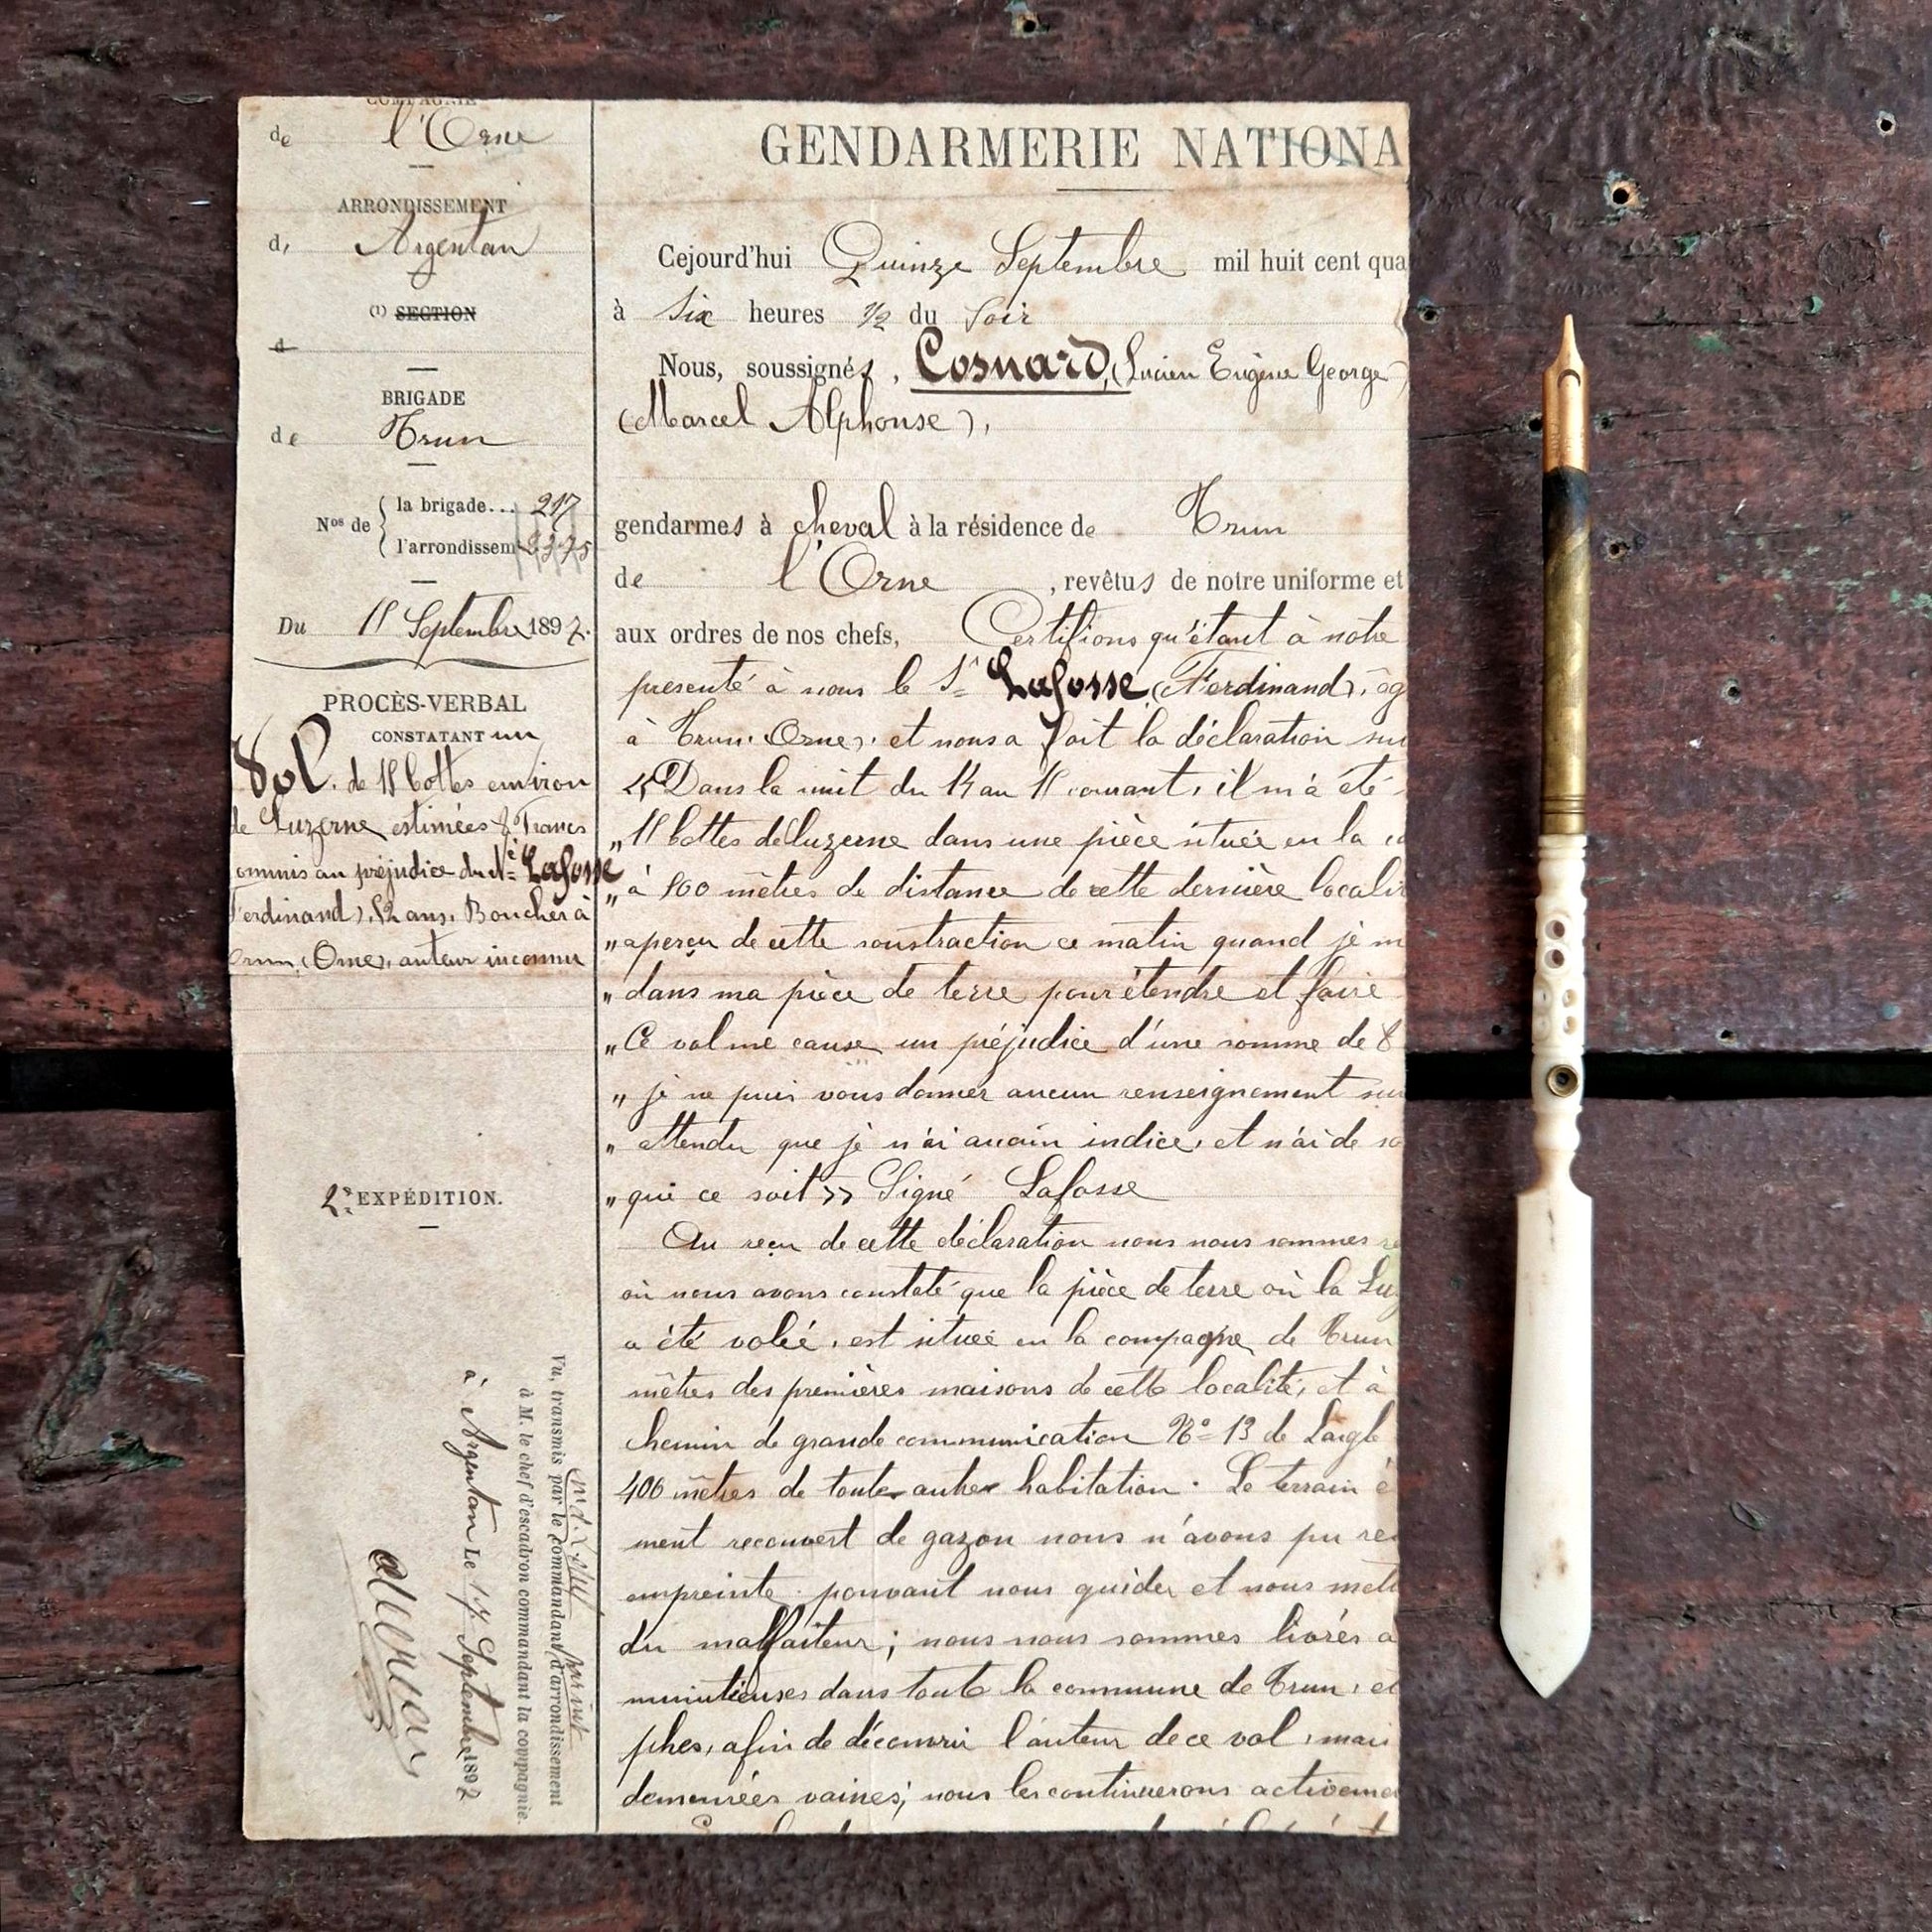 COMPAGNIE
de l'Orne
ARRONDISSEMENT
d' Argentan
(1) SECTION
d
BRIGADE
de Trun
Nos de
la brigade... 217
l'arrondissem
Du 15 Septembre 1892.
PROCÈS-VERBAL
CONSTATANT un
Vol. de 15 bottes environ
de Luzerne estimées 8 Francs
ommis au préjudice du né Lafosse
Ferdinand), 52 ans, Boucher à
run, (Orne), auteur inconnu
2e EXPÉDITION.
Vu, transmis par le commandant d'arrondissement
à M. le chef d'escadron commandant la compagnie.
à Argentan Le 17 Septembre 1892
GENDARMERIE NATIONA
Cejourd'hui Quinze Septembre mil huit cent qua
à six heures 1/2 du soir
Nous, soussignés, Cosnard, (Lucien Eugène George
(Marcel Alphonse),
gendarmes à cheval à la résidence de Trun
de l'Orne, revêtus de notre uniforme et
aux ordres de nos chefs, Certifions qu'étant à notre
présenté à nous le Sr Lafosse, (Ferdinand), âg
à Trun (Orne), et nous a fait la déclaration sui
« Dans la nuit du 14 au 15 courant, il m'a été
" 15 bottes de luzerne dans une pièce située en la ca
" à 800 mètres de distance de cette dernière localit
" aperçu de cette soustraction ce matin quand je m
" dans ma pièce de terre pour étendre et faire
" Ce vol me cause un préjudice d'une somme de 8
" je ne puis vous donner aucun renseignement sur
" attendu que je n'ai aucun indice, et n'ai de so
" qui ce soit » Signé Lafosse
Au reçu de cette déclaration nous nous sommes re
où nous avons constaté que la pièce de terre où la Luz
a été volée, est située en la campagne de Trun
mètres des premières maisons de cette localité, et à
chemin de grande communication No 13 de Laigle
400 mètres de toute autre habitation. Le terrain é
ment recouvert de gazon nous n'avons pu re
empreinte pouvant nous guider et nous mett
du malfaiteur; nous nous sommes livrés a
minutieuses dans toute la commune de Trun, et
phes, afin de découvrir l'auteur de ce vol, mais
demeurées vaines; nous les continuerons activeme